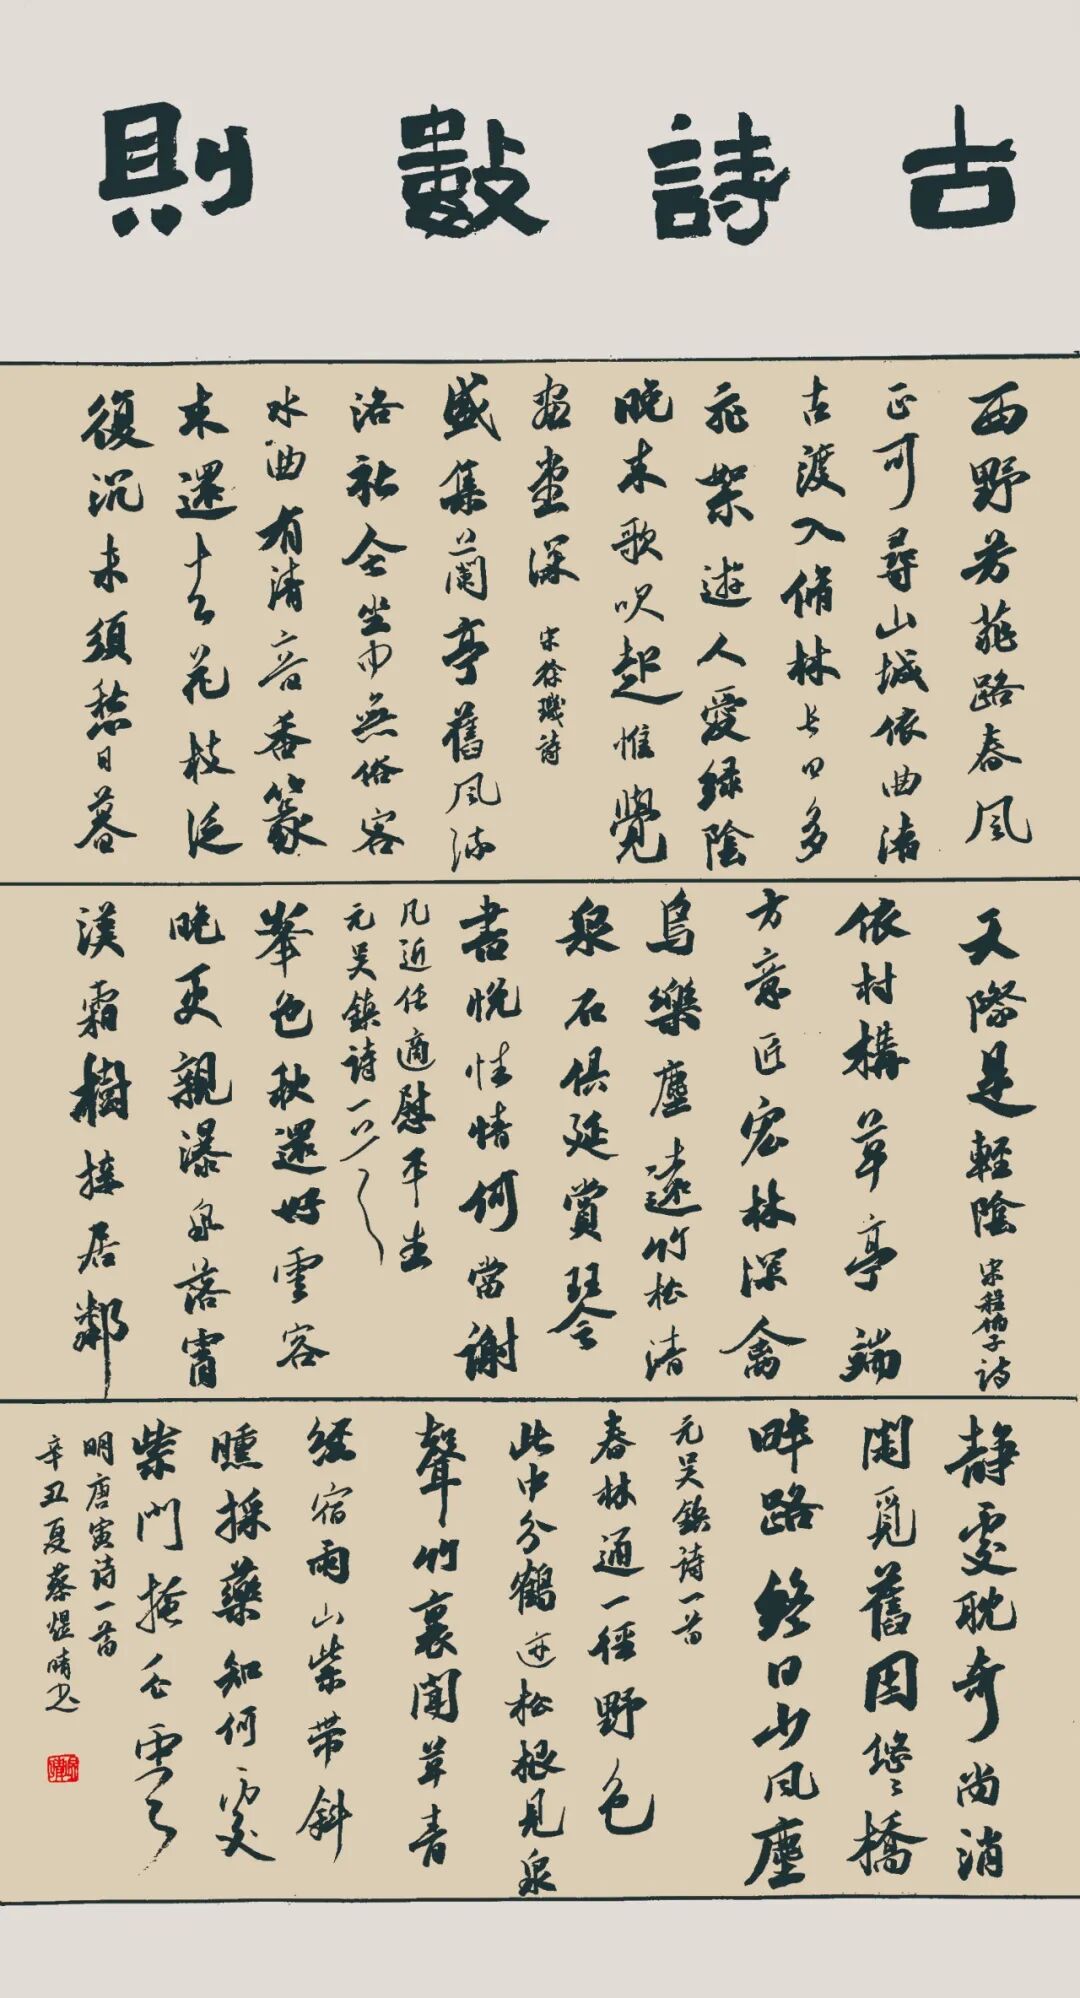 古詩數則
西野芳菲路春風
正可尋山城依曲渚
古渡入脩林長日多
飛絮遊人愛綠陰
晚来歌吹起惟覺
畫堂深
宋徐璣詩
盛集蘭亭舊風流
洛社今坐中無俗客
水曲有清音香篆
来還去花枝泛
復沉未須愁日暮
天際是輕陰
宋程伯子詩
依村構草亭端
方意匠宏林深禽
鳥樂塵遠竹松清
泉石俱延賞琴
書悅性情何當謝
凡近任適慰平生
元吳鎮詩一首
峯色秋還好雲容
晚更親瀑泉落霄
漢霜樹接居鄰
静處耽奇尚消
閑覓舊因悠悠橋
畔路終日少風塵
元吳鎮詩一首
春林通一徑野色
此中分鶴迹松根見泉
聲竹裏聞草青
經宿雨山紫帶斜
曛採藥知何處
柴門掩白雲
明唐寅詩一首
辛丑夏蔡煜晴書